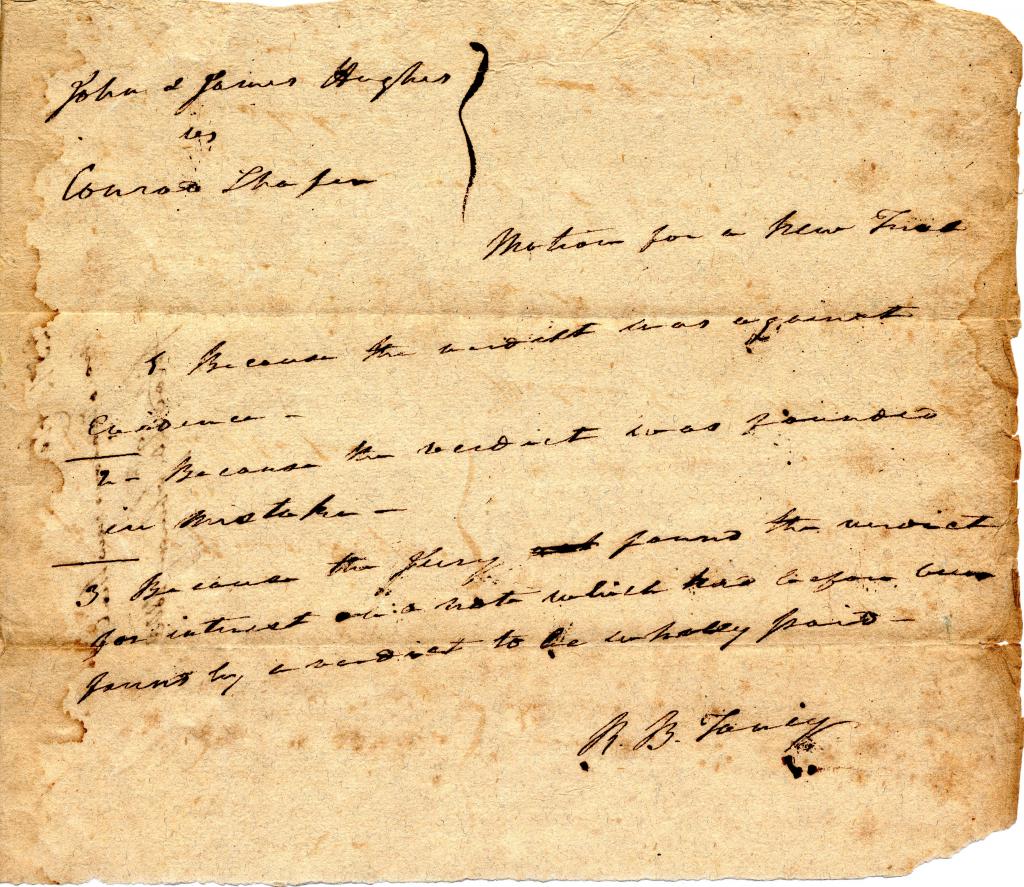 John & James Hughes
vs
Conrad Shafer
Motion for a New Trial
1. Because the verdict was against
Evidence -
2 - Because the verdict was founded
in mistake -
3. Because the Jury found the verdict
for interest on a note which had before been
found by a verdict to be wholly paid -
R. B. Taney